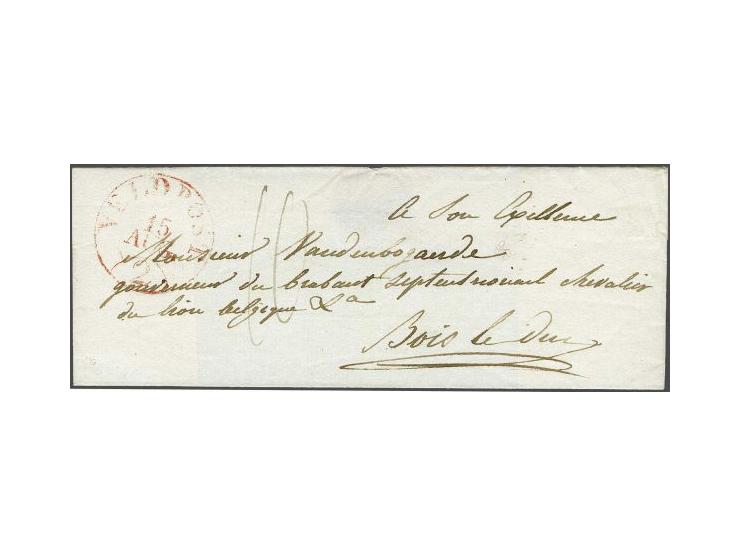 VELDPOST
15
A son Exellence
Monsieur Vandenbogaerde
gouverneur du brabant septentrionail chevalier
du lion belgique &a
Bois le Duc
10